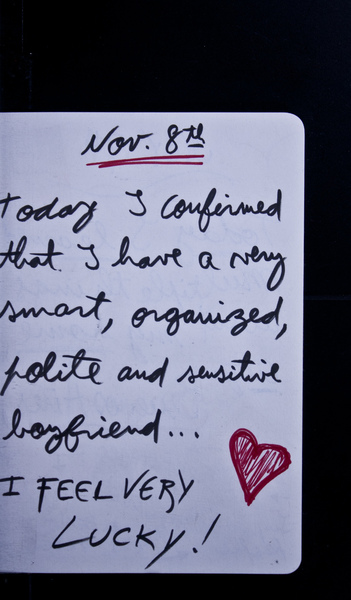 Nov. 8th
Today I confirmed
that I have a very
smart, organized,
polite and sensitive
boyfriend...
I FEEL VERY
LUCKY!